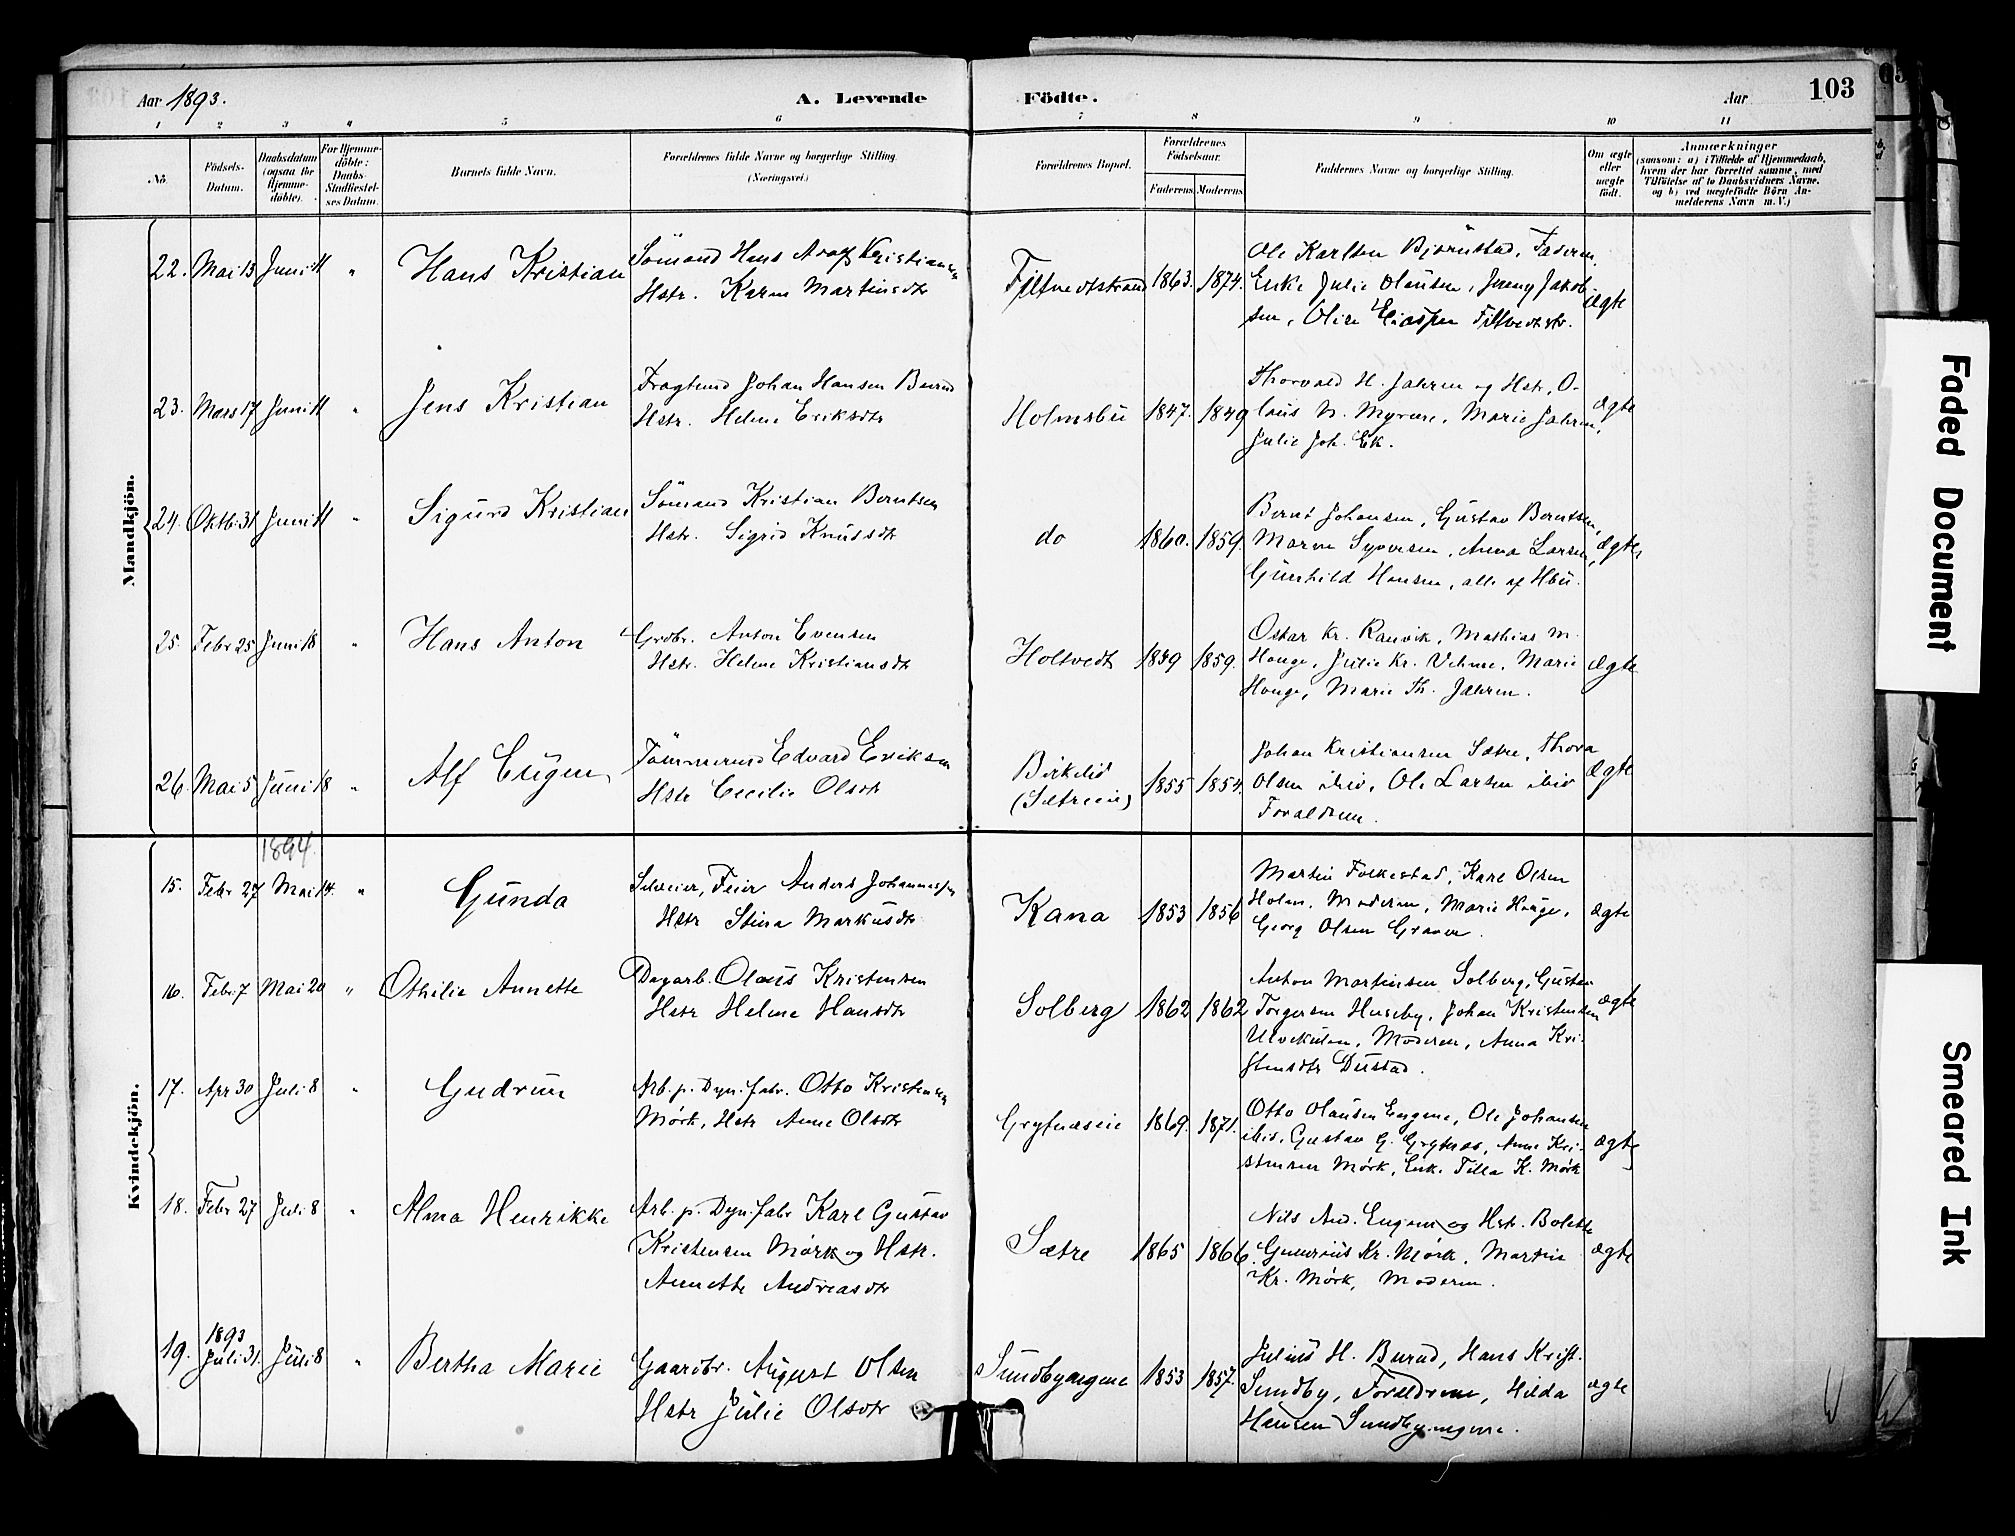 Aar 1893.
A. Levende
Födte.
Aar
103
1 2 3 4 5 6 7 8 9 10 11
No.
Födsels-
Datum.
Daabsdatum
(ogsaa for
Hjemme-
döbte).
For Hjemme-
döbte:
Daabs-
Stadfæstel-
ses Datum.
Barnets fulde Navn.
Forældrenes fulde Navne og borgerlige Stilling.
(Næringsvei.)
Forældrenes Bopæl.
Forældrenes
Födselsaar.
Faderens. Moderens.
Faddernes Navne og borgerlige Stilling.
Om ægte
eller
uægte
födt.
Anmærkninger
(saasom: a) i Tilfælde af Hjemmedaab,
hvem der har forrettet samme, med
Tilföielse af to Daabsvidners Navne,
og b) ved uægtefödte Börn An-
melderens Navn m. V.)
Mandkjön.
22. Mai 13 Juni 11 " Hans Kristian
Sömand Hans Adolf Kristiansen
Hstr. Karen Martinsdtr
Filtvedtstrand 1863. 1874.
Ole Karlsen Bjørnstad, Faderen,
Enke Julie Olausen, Jenny Jakob-
sen, Oline Filtvedtstr.
ægte
23. Mars 17 Juni 11 " Jens Kristian
Fragtmd Johan Hansen Burud
Hstr. Helene Eriksdtr
Holmsbu 1847. 1849
Thorvald H. Jahren og Hstr, O-
laus N. Myrene, Marie Jahren,
Julie Joh. Ek.
ægte
24. Oktbr 31 Juni 11 " Sigurd Kristian
Sömand Kristian Berntsen
Hstr. Sigrid Knudsdtr
do 1860. 1859.
Bernt Johansen, Gustav Berntsen,
Maren Syversen, Anna Larsen,
Gunhild Hansen, alle af Hbu.
ægte
25. Febr 25 Juni 18 " Hans Anton
Grdbr. Anton Evensen
Hstr. Helene Kristiansdtr
Holtvedt 1859 1859.
Oskar Kr. Ranvik, Mathias M.
Hauge, Julie Kr. Marie
Hauge, Marie Th. Jahren.
ægte
26. Mai 5 Juni 18 " Alf Eugen
Tömmermd Edvard Eriksen
Hstr Cecilie Olsdtr
Birkelid
(Sætreeie) 1855 1854.
Johan Kristiansen Sætre, Thora
Olsen ibid, Ole Larsen ibid
Forældrene.
ægte
Kvindekjön.
1894.
15. Febr 27 Mai 14. " Gunda
Selveier, Feier Anders Johannessen
Hstr Stina Markusdtr
Kana 1853 1856
Martin Folkestad, Karl Olsen
Holm, Moderen, Marie Hauge,
Georg Olsen Graver.
ægte
16. Febr. 7 Mai 20 " Othilie Annette
Dagarb. Olaus Kristensen
Hstr Helene Hansdtr
Solberg 1862 1862
Anton Martinsen Solberg, Gustav
Torgersen Huseby, Johan Kristensen
Moderen, Anna Kri-
stensdtr Dustad.
ægte
17. Apr 30 Juli 8 " Gudrun
Arb. p. Dyn. fabr. Otto Kristensen
Mörk, Hstr Anne Olsdtr
Grytnæseie 1869. 1871.
Otto Olausen Engene, Ole Johansen
ibid, Gustav G. Grytnæs, Anne Kri-
stensen Mörk, Enk. Tilla K. Mörk
ægte
18. Febr 27 Juli 8 " Alma Henrikke
Arb. p. Dyn. fabr Karl Gustav
Kristensen Mörk og Hstr.
Annette Andreasdtr
Sætre 1865 1866
Nils And. Engene og Hstr. Bolette
Gunerius Kr. Mörk, Martin
Kr. Mörk, Moderen.
ægte
19. 1893
Juli 31. Juli 8 " Bertha Marie
Gaardbr. August Olsen
Hstr Julie Olsdtr
Sundbyengene 1853 1857.
Julius H. Burud, Hans Krist.
Sundby, Forældrene, Hilda
Hansen Sundbyengene.
ægte
Faded Document
Smeared Ink